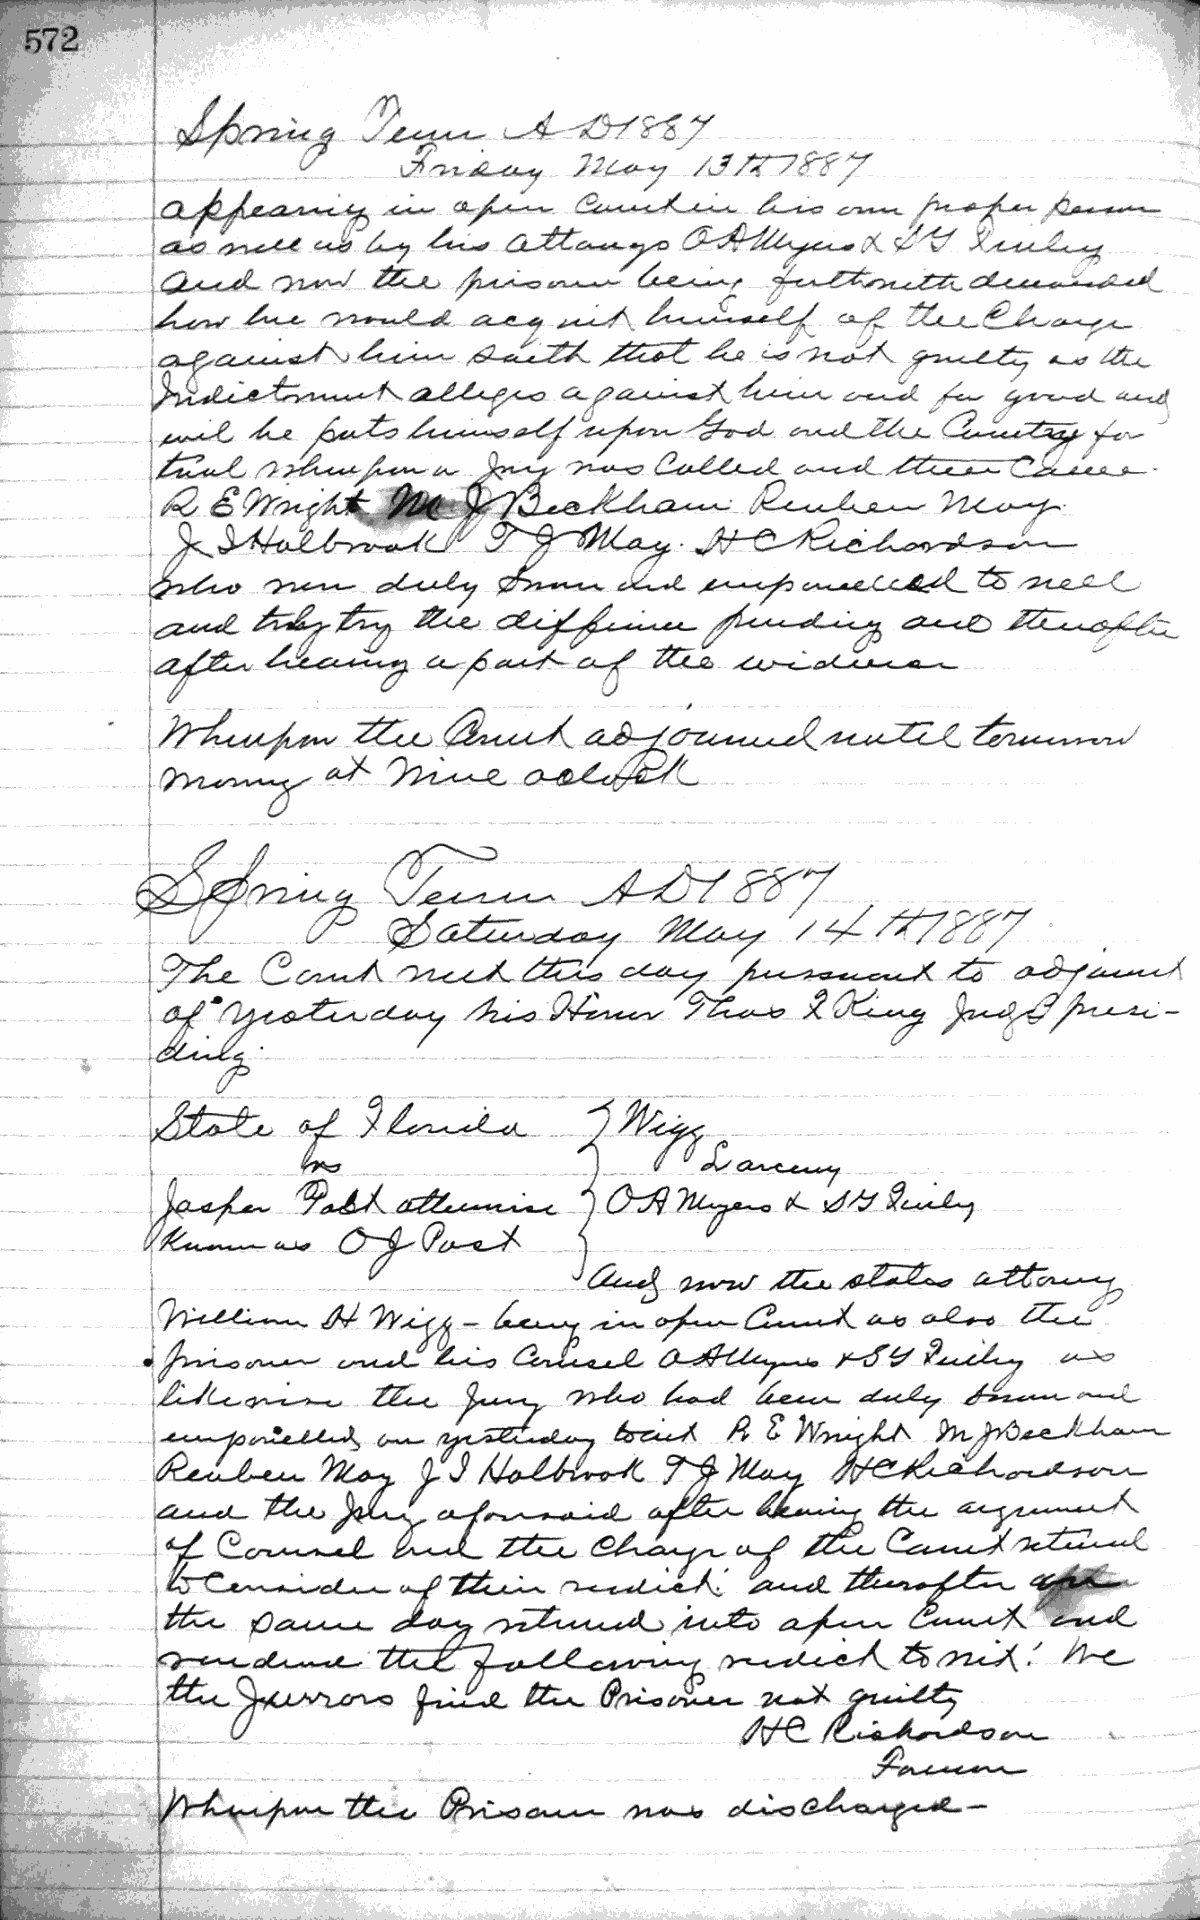 572
Spring Term A D 1887
Friday May 13th 1887
appearing in open Court in his own proper person
as well as by his attorneys O A Myers & S Y Finley
and now the prisoner being forthwith demanded
how he would acquit himself of the Charge
against him saith that he is not guilty as the
Indictment alleges against him and for good and
evil he puts himself upon God and the Country for
trial whereupon a Jury was Called and there Came
R E Wright M J Beckham Reuben May
J I Holbrook T J May H C Richardson
who were duly sworn and empanelled to well
and truly try the difference pending and thereafter
after hearing a part of the evidence
Whereupon the Court adjourned until tomorrow
morning at Nine oclock
Spring Term A D 1887
Saturday May 14th 1887
The Court met this day pursuant to adjournt
of yesterday his Honor Thos F King Judge presi-
ding.
State of Florida Wigg
vs Larceny
Jasper Post otherwise O A Myers & S Y Finley
Known as O J Post
And now the states attorney
William H Wigg - being in open Court as also the
prisoner and his Counsel O A Myers & S Y Finley as
likewise the Jury who had been duly sworn and
empanelled on yesterday towit R E Wright M J Beckham
Reuben May J I Holbrook T J May H C Richardson
and the Jury aforesaid after hearing the argument
of Counsel and the Charge of the Court retired
to Consider of their verdict. and thereafter
the same day returned into open Court and
rendered the following verdict to wit: We
the Jurrors find the Prisoner not guilty
H C Richardson
Forman
Whereupon the Prisoner was discharged -